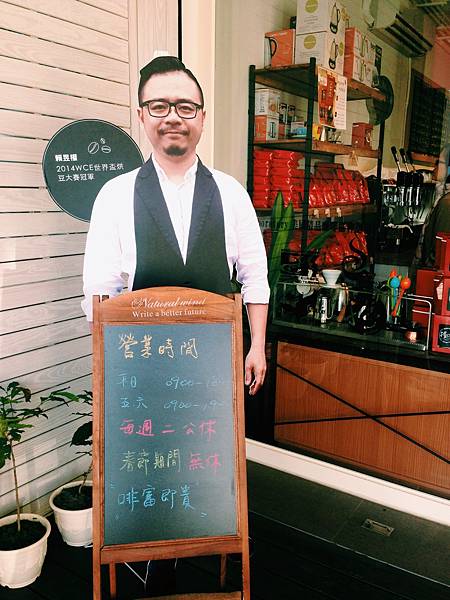 賴昱權
2014WCE世界盃烘
豆大賽冠軍
Natural wind
Write a better future
營業時間
平日 0900-18
五六 0900-19
每週二公休
春節期間無休
"啡富即貴"